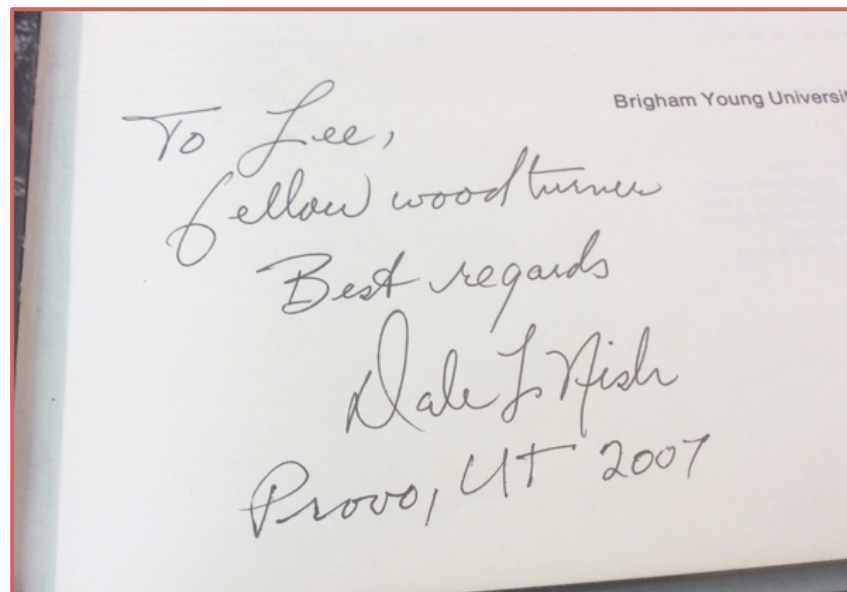 Brigham Young Universit
To Lee,
fellow woodturner
Best regards
Dale L. Nish
Provo, UT 2007